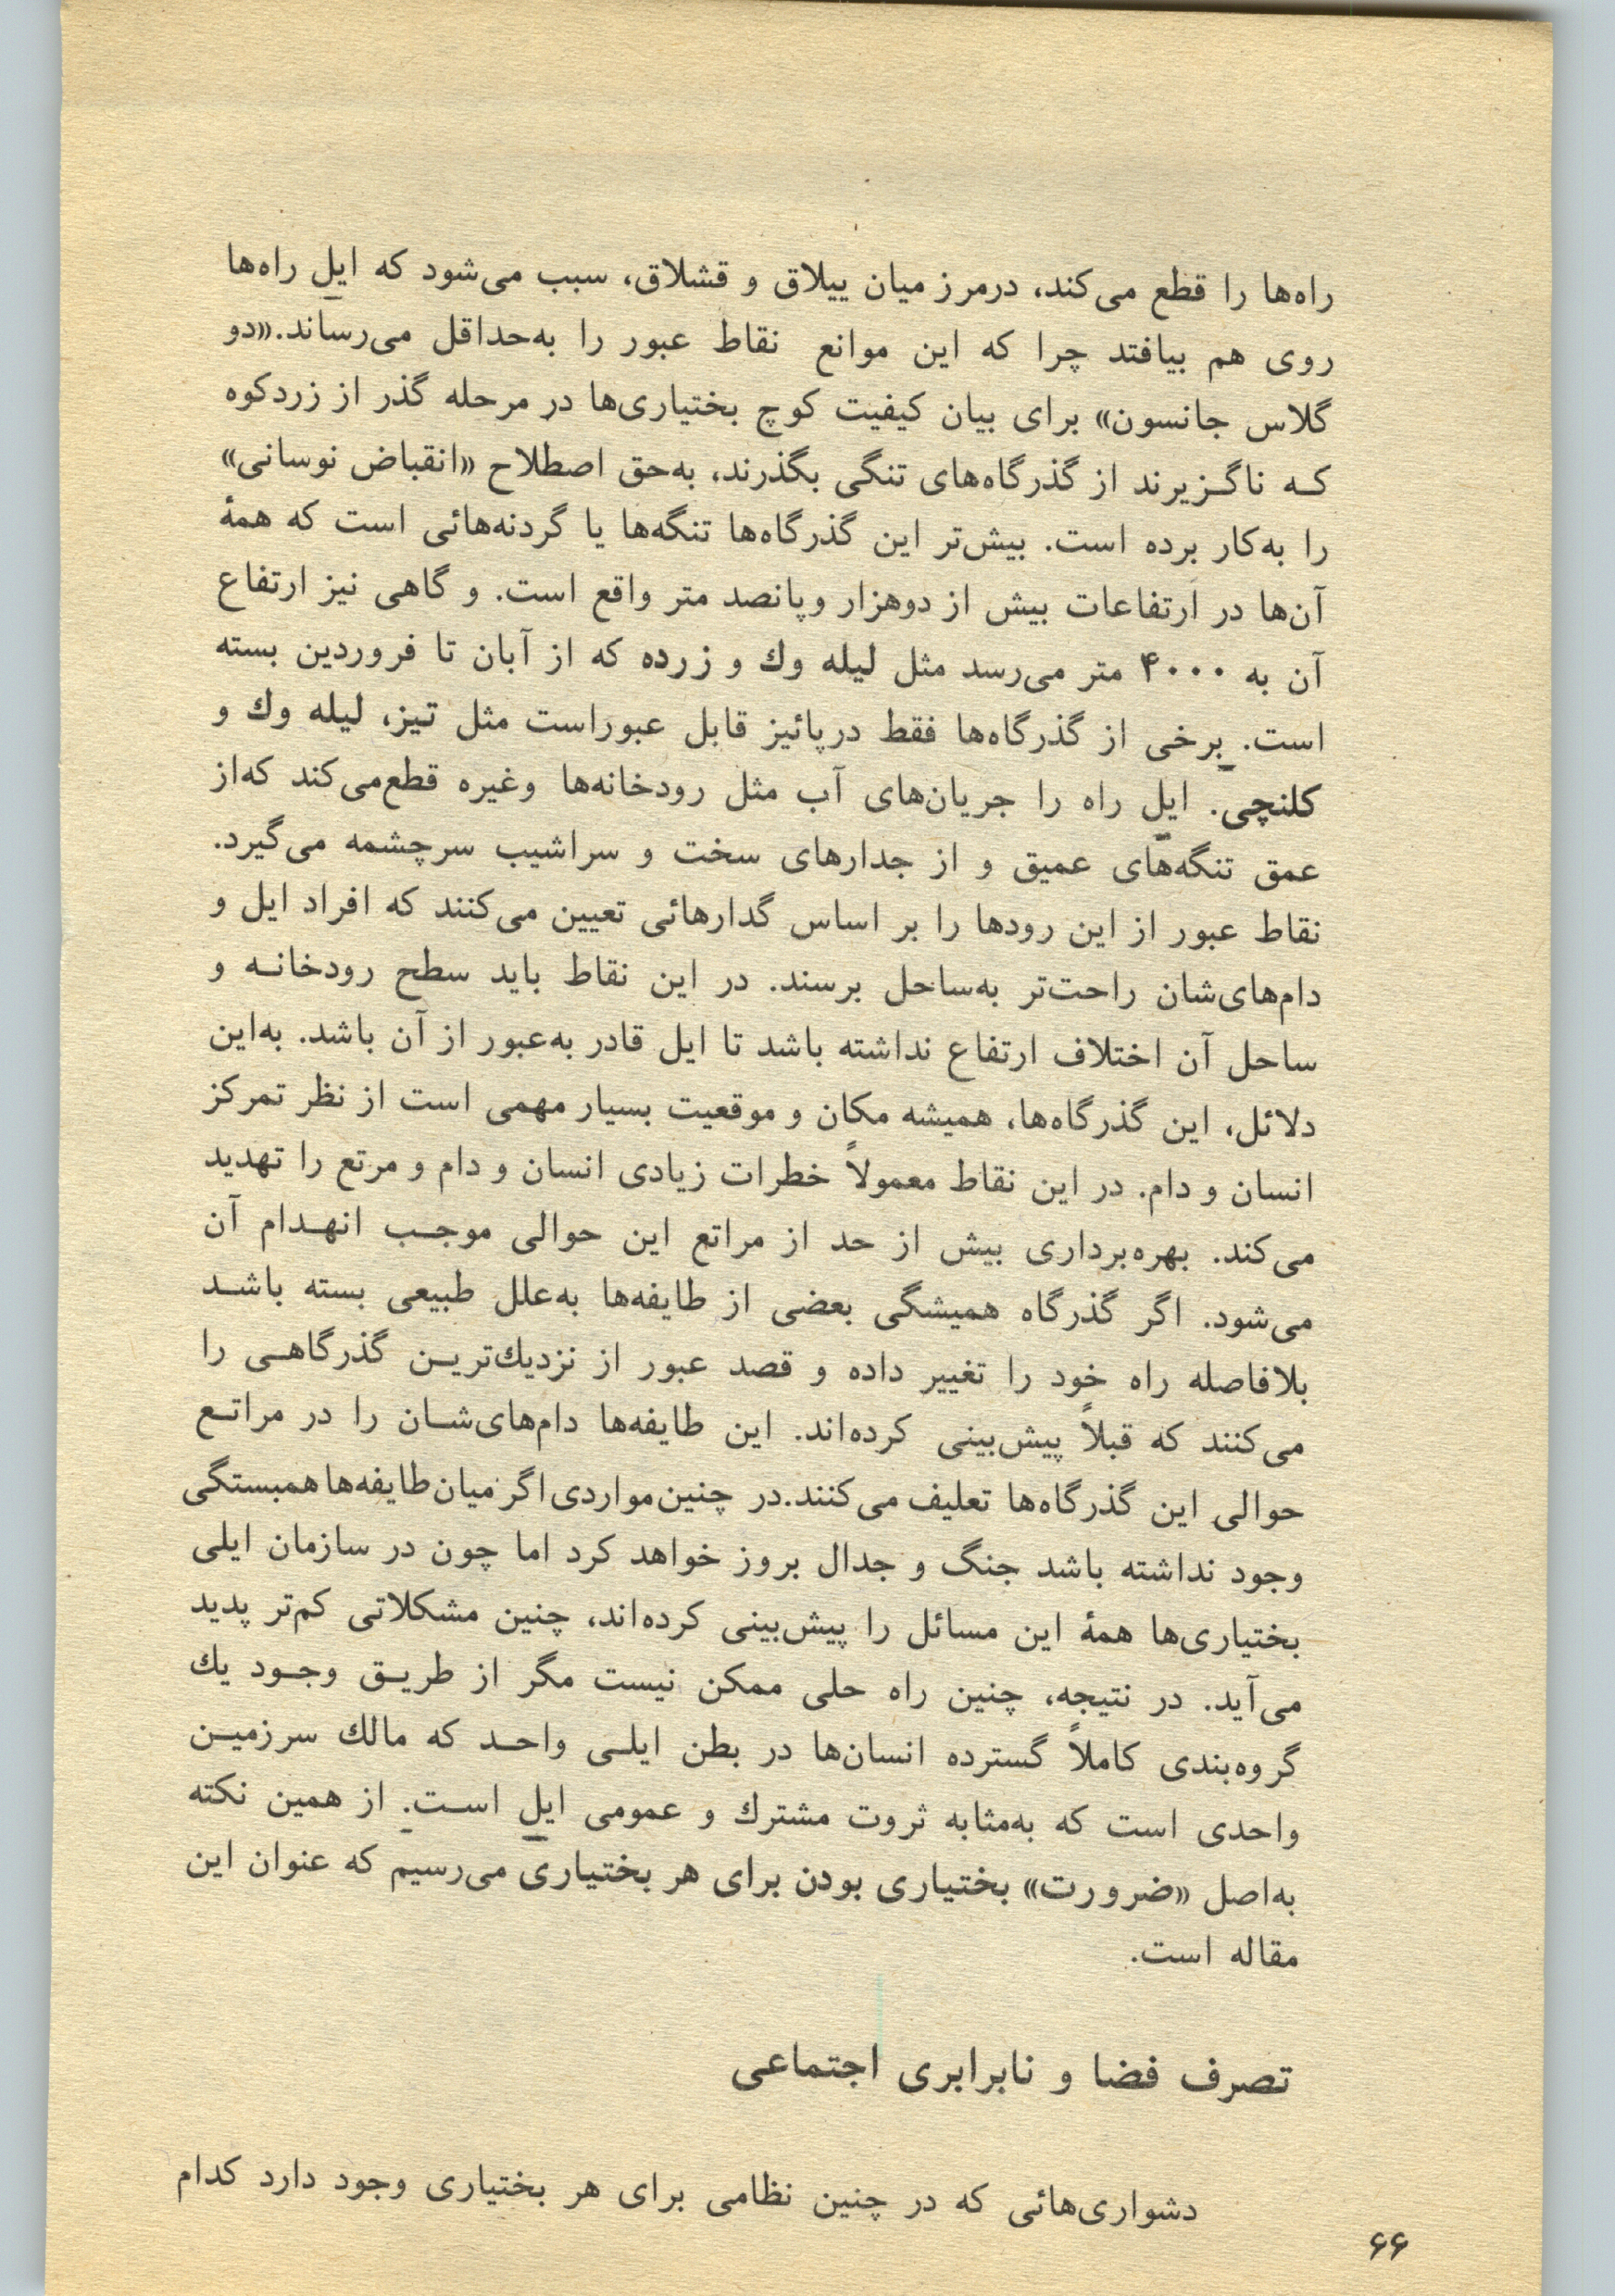 راه‌ها را قطع می‌کند، درمرز میان ییلاق و قشلاق، سبب می‌شود که ایل راه‌ها
روی هم بیافتد چرا که این موانع نقاط عبور را به‌حداقل می‌رساند.«دو
گلاس جانسون» برای بیان کیفیت کوچ بختیاری‌ها در مرحله گذر از زردکوه
کـه ناگـزیرند از گذرگاه‌های تنگی بگذرند، به‌حق اصطلاح «انقباض نوسانی»
را به‌کار برده است. بیش‌تر این گذرگاه‌ها تنگه‌ها یا گردنه‌هائی است که همهٔ
آن‌ها در ارتفاعات بیش از دوهزار وپانصد متر واقع است. و گاهی نیز ارتفاع
آن به ۴۰۰۰ متر می‌رسد مثل لیله وك و زرده که از آبان تا فروردین بسته
است. برخی از گذرگاه‌ها فقط درپائیز قابل عبوراست مثل تیز، لیله وك و
کلنچی. ایل راه را جریان‌های آب مثل رودخانه‌ها وغیره قطع‌می‌کند که‌از
عمق تنگه‌های عمیق و از جدارهای سخت و سراشیب سرچشمه می‌گیرد.
نقاط عبور از این رودها را بر اساس گدارهائی تعیین می‌کنند که افراد ایل و
دام‌های‌شان راحت‌تر به‌ساحل برسند. در این نقاط باید سطح رودخانـه و
ساحل آن اختلاف ارتفاع نداشته باشد تا ایل قادر به‌عبور از آن باشد. به‌این
دلائل، این گذرگاه‌ها، همیشه مکان و موقعیت بسیار مهمی است از نظر تمرکز
انسان و دام. در این نقاط معمولاً خطرات زیادی انسان و دام و مرتع را تهدید
می‌کند. بهره‌برداری بیش از حد از مراتع این حوالی موجـب انهـدام آن
می‌شود. اگر گذرگاه همیشگی بعضی از طایفه‌ها به‌علل طبیعی بسته باشـد
بلافاصله راه خود را تغییر داده و قصد عبور از نزدیك‌تریـن گذرگاهـی را
می‌کنند که قبلاً پیش‌بینی کرده‌اند. این طایفه‌ها دام‌های‌شـان را در مراتـع
حوالی این گذرگاه‌ها تعلیف می‌کنند.در چنین‌مواردی‌اگر میان‌طایفه‌ها همبستگی
وجود نداشته باشد جنگ و جدال بروز خواهد کرد اما چون در سازمان ایلی
بختیاری‌ها همهٔ این مسائل را پیش‌بینی کرده‌اند، چنین مشکلاتی کم‌تر پدید
می‌آید. در نتیجه، چنین راه حلی ممکن نیست مگر از طریـق وجـود یك
گروه‌بندی کاملاً گسترده انسان‌ها در بطن ایلـی واحـد که مالك سرزمیـن
واحدی است که به‌مثابه ثروت مشترك و عمومی ایل اسـت. از همین نکته
به‌اصل «ضرورت» بختیاری بودن برای هر بختیاری می‌رسیم که عنوان این
مقاله است.
تصرف فضا و نابرابری اجتماعی
دشواری‌هائی که در چنین نظامی برای هر بختیاری وجود دارد کدام
۶۶